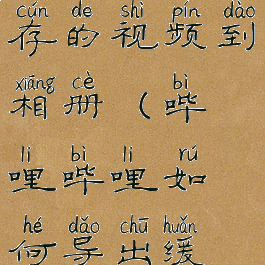 cún de shì pín dào
存的视频到
xiāng cè bì
相册（哔
li bì li rú
哩哔哩如
hé dǎo chū huǎn
何导出缓